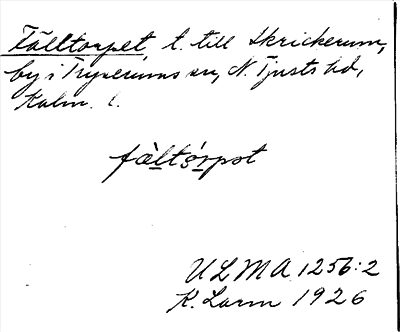 Fälltorpet, t. till Skrickerum,
by i Tryserums sn, N. Tjusts hd,
Kalm. l.
fàltór̲pət
ULMA 1256:2
K. Larm 1926